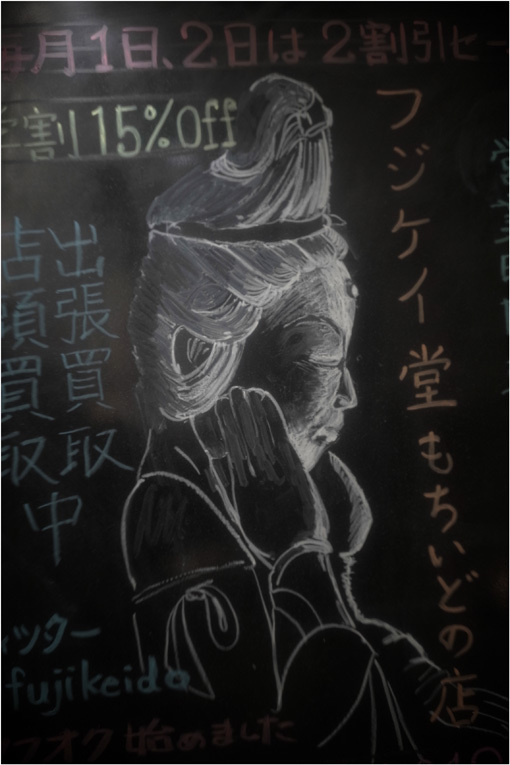 毎月1日、2日は2割引セー
学割15%Off
フジケイ堂もちいどの店
出張買取
店頭買取中
ィッター
fujikeido
フオク始めました